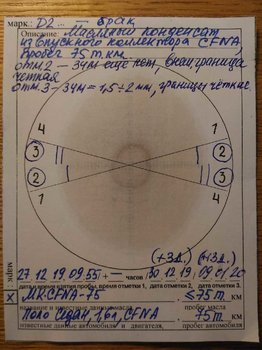 марк.: D2 ... — брак
Описание: Масляный конденсат
из впускного коллектора CFNA,
пробег 75 т. км
отм 2 — ЗЧМ ещё нет, внеш граница
чёткая
отм. 3 — ЗЧМ = 1,5÷2 мм, границы чёткие
4 4
3 3
2 2
1 1
(+3д.) (+13д.)
27 12 19 09 55 + — часов 30 12 19 09 01 20
дата и время взятия пробы, время отметки 1, дата отметки 2, дата отметки 3.
X MR-CFNA-75 ≤75 т. км
название и известные данные масла пробег масла
Поло Седан, 1,6л, CFNA 75 т. км
известные данные автомобиля и двигателя, пробег автомобиля
марк: